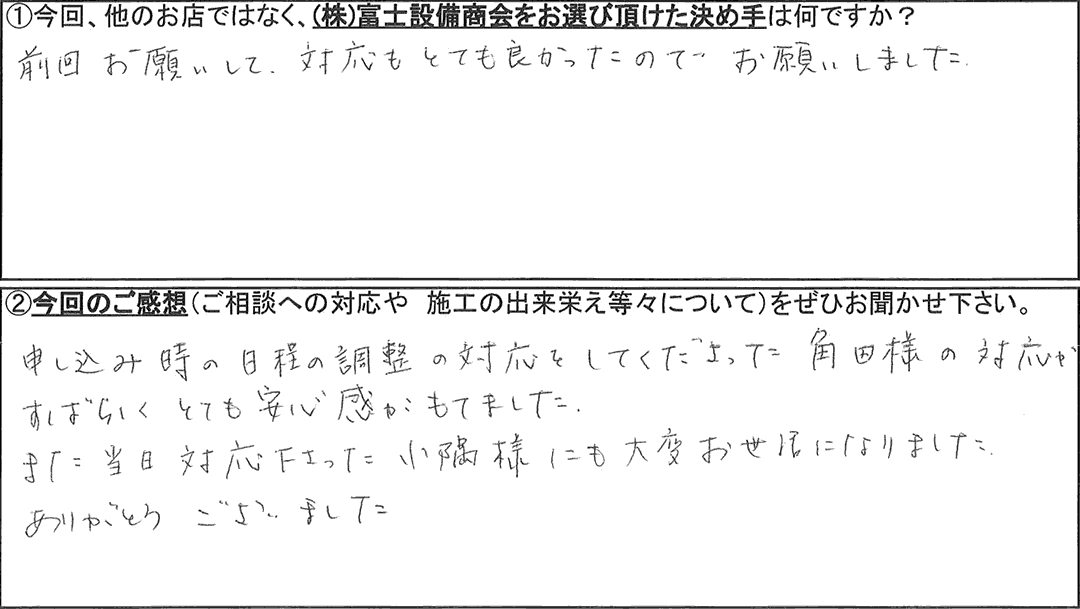 ①今回、他のお店ではなく、(株)富士設備商会をお選び頂けた決め手は何ですか？
前回お願いして、対応もとても良かったのでお願いしました。
②今回のご感想(ご相談への対応や　施工の出来栄え等々について)をぜひお聞かせ下さい。
申し込み時の日程の調整の対応をしてくださった角田様の対応が
すばらしくとても安心感がもてました。
また当日対応下さった小隅様にも大変お世話になりました。
ありがとうございました